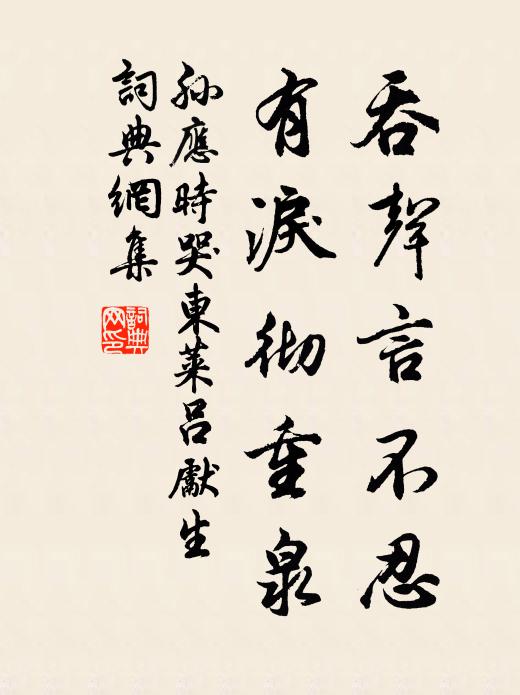 吞聲言不忍
有淚徹重泉
孫應時哭東萊呂獻生
詞典網集
詞典
网印